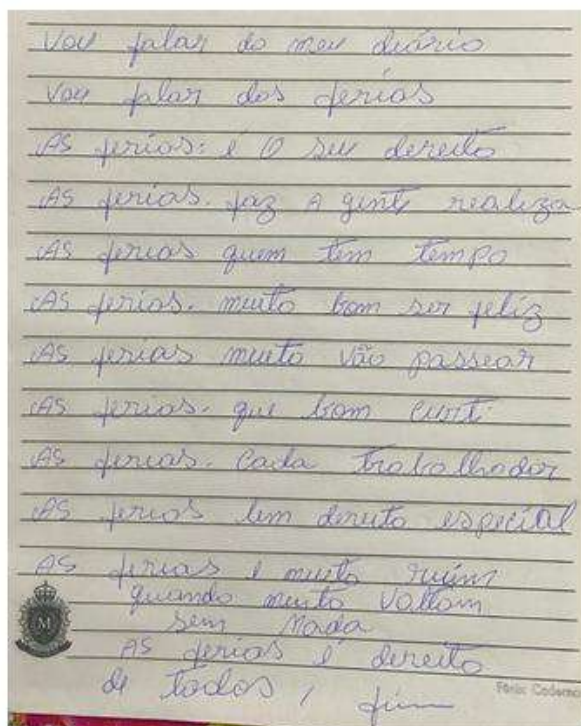 Vou falar do meu diário
Vou falar das ferias
AS ferias: é O seu dereito
AS ferias. faz A gente realiza
AS ferias quem tem tempo
AS ferias. muito bom ser feliz
AS ferias muito vão passear
AS ferias. que bom curti.
AS ferias. Cada trabalhador
AS ferias tem dereito especial
AS ferias é muito ruim
quando muito Voltam
sem Nada
AS ferias é dereito
de todos, fim
M
Fênix Caderno